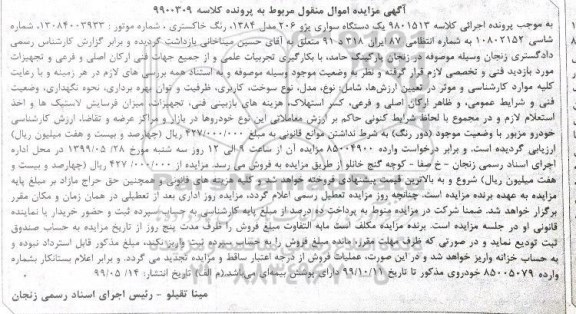 آگهی مزایده اموال منقول مربوط به پرونده کلاسه ۹۹۰۰۳۰۹
به موجب پرونده اجرائی کلاسه ۹۸۰۱۵۱۳ یک دستگاه سواری پژو ۲۰۶ مدل ۱۳۸۴، رنگ خاکستری ، شماره موتور : ۱۳۰۸۴۰۰۳۹۳۳، شماره
شاسی ۱۰۸۰۲۱۵۲ به شماره انتظامی ۸۷ ایران ۳۱۸ د ۹۱ متعلق به آقای حسین میناخانی بازداشت گردیده و برابر گزارش کارشناس رسمی
دادگستری زنجان وسیله موصوفه در زنجان پارکینگ حامد، با بکارگیری تجربیات علمی و از جمیع جهات فنی ارکان اصلی و فرعی و تجهیزات
مورد بازدید فنی و تخصصی لازم قرار گرفته و نظر به وضعیت موجود وسیله موصوفه و به استناد همه بررسی های لازم در هر زمینه و با رعایت
کلیه موارد کارشناسی و موثر در تعیین ارزش‌ها، شامل: نوع، مدل، نوع سوخت، کاربری، ظرفیت و توان بهره برداری، نحوه نگهداری، وضعیت
فنی و شرایط عمومی، و ظاهر ارکان اصلی و فرعی، کسر استهلاک، هزینه های بازبینی فنی، تجهیزات، میزان فرسایش لاستیک ها و اخذ
استعلام لازم و در مجموع با لحاظ شرایط کنونی حاکم بر ارزش معاملاتی این نوع خودروها در بازار و مراکز عرضه و تقاضا، ارزش کارشناسی
خودرو مزبور با وضعیت موجود (دور رنگ) به شرط نداشتن موانع قانونی به مبلغ ۴۲۷/۰۰۰/۰۰۰ ریال (چهارصد و بیست و هفت میلیون ریال)
ارزیابی گردیده است. و برابر درخواست وارده ۸۵۰۰۴۹۰۰ مزایده آن از ساعت ۹ الی ۱۲ روز سه شنبه مورخ ۱۳۹۹/۰۵/۲۸ در محل اداره
اجرای اسناد رسمی زنجان - خ صفا - کوچه گنج خانلو از طریق مزایده به فروش می رسد. مزایده از ۴۲۷/۰۰۰/۰۰۰ ریال (چهارصد و بیست و
هفت میلیون ریال) شروع و به بالاترین قیمت پیشنهادی فروخته خواهد شد. و کلیه هزینه های قانونی و همچنین حق حراج مازاد بر مبلغ پایه
مزایده به عهده برنده مزایده است. چنانچه روز مزایده تعطیل رسمی اعلام گردد، مزایده روز اداری بعد از تعطیلی در همان زمان و مکان مقرر
برگزار خواهد شد. ضمنا شرکت در مزایده منوط به پرداخت ده درصد از مبلغ پایه کارشناسی به حساب سپرده ثبت و حضور خریدار یا نماینده
قانونی او در جلسه مزایده است. برنده مزایده مکلف است مابه التفاوت مبلغ فروش را ظرف مدت پنج روز از تاریخ مزایده به حساب صندوق
ثبت تودیع نماید و در صورتی که ظرف مهلت مقرر، مانده مبلغ فروش را به حساب سپرده ثبت واریز نکند، مبلغ مذکور قابل استرداد نبوده و
به حساب خزانه واریز خواهد شد و در این صورت، عملیات فروش از درجه اعتبار ساقط و مزایده تجدید می گردد. و برابر اعلام بستانکار بشماره
وارده ۸۵۰۰۵۰۷۹ خودروی مذکور تا تاریخ ۹۹/۱۰/۱۱ دارای پوشش بیمه‌ای می‌باشد.(م الف) تاریخ انتشار: ۹۹/۰۵/۱۴
مینا تقیلو - رئیس اجرای اسناد رسمی زنجان